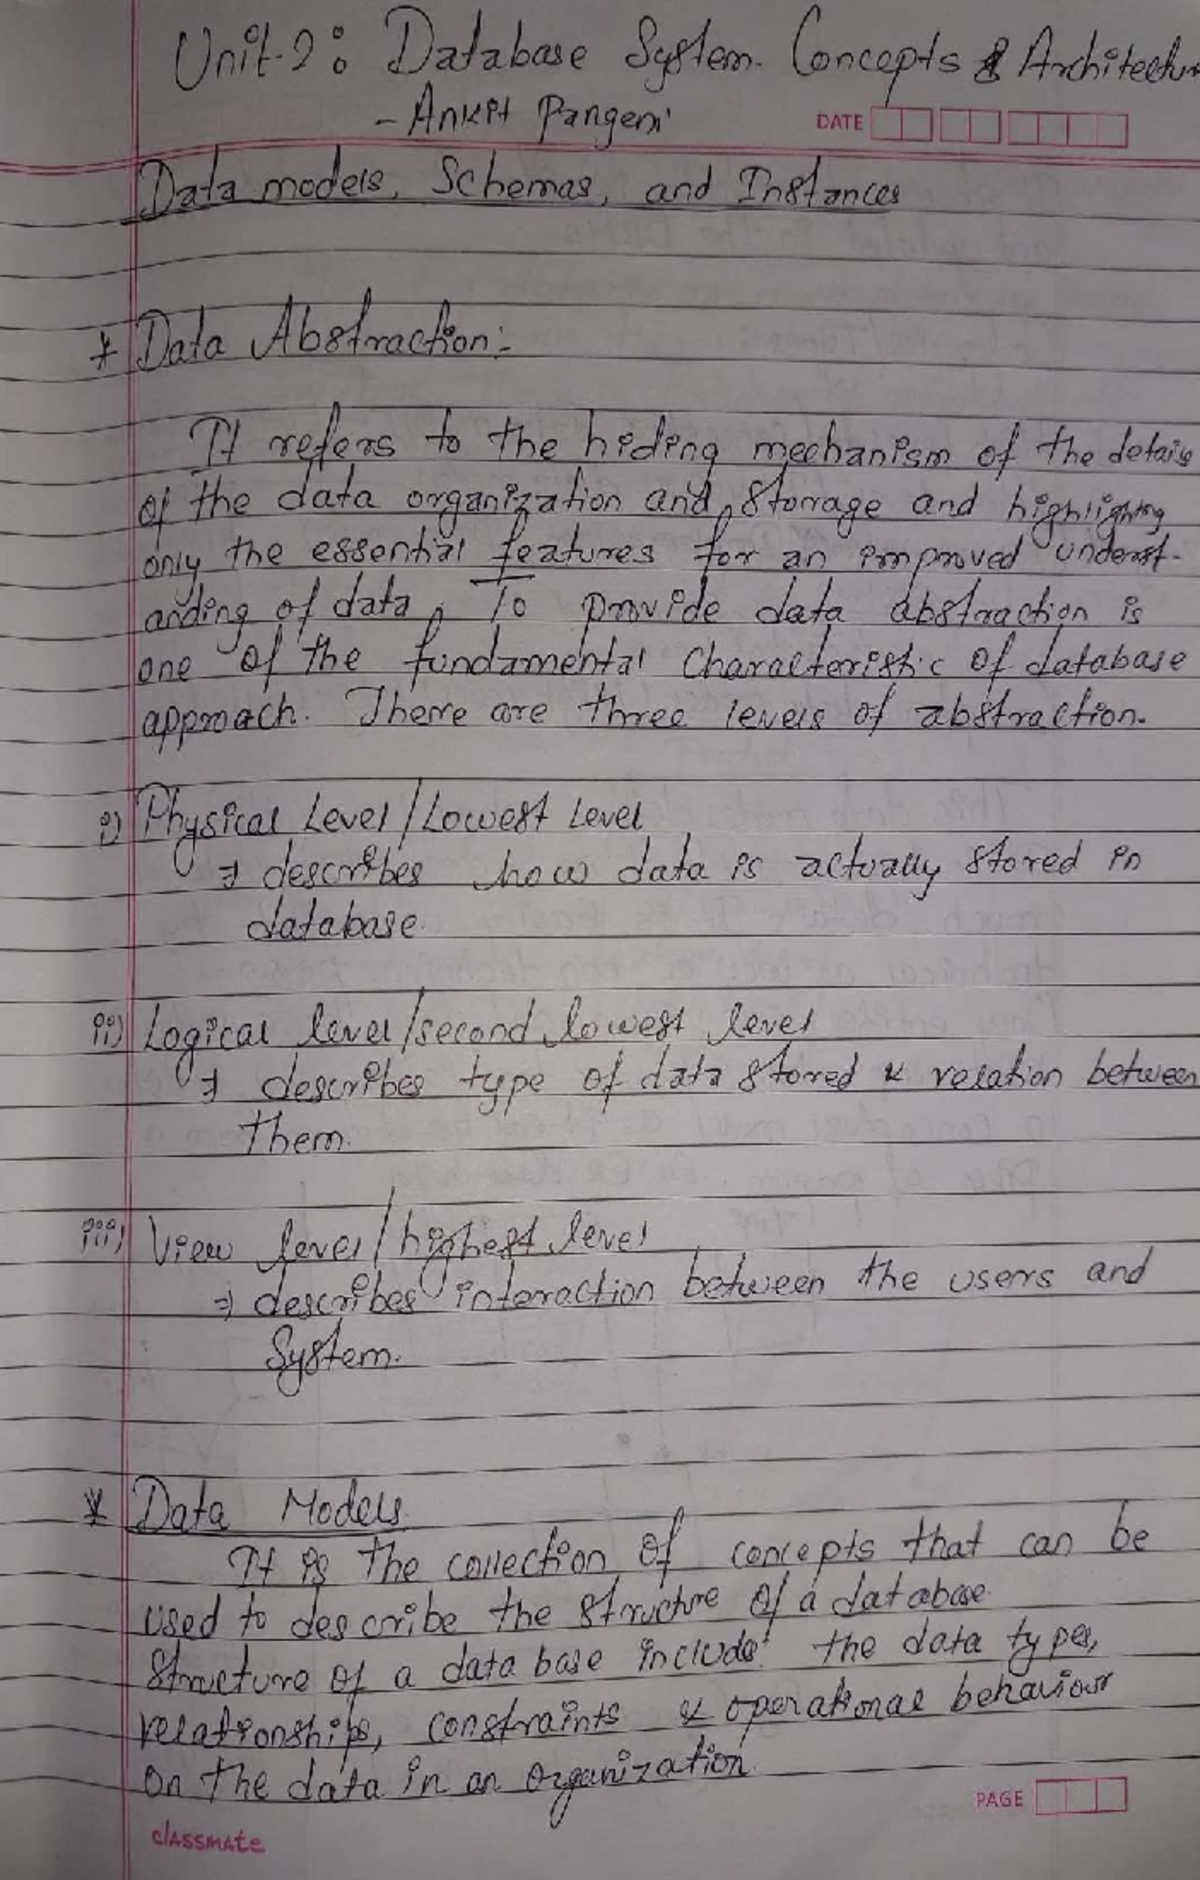 Unit-2: Database System Concepts & Architectur
- Ankit Pangeni
DATE
Data models, Schemas, and Instances
* Data Abstraction:-
It refers to the hiding mechanism of the details
of the data organization and storage and highlighting
only the essential features for an improved underst-
anding of data. To provide data abstraction is
one of the fundamental characteristic of database
approach. There are three levels of abstraction.
i) Physical Level/Lowest Level
⇒ describes how data is actually stored in
database.
ii) Logical level/second lowest level
⇒ describes type of data stored & relation between
them.
iii) View level/highest level
⇒ describes interaction between the users and
System.
* Data Models
It is the collection of concepts that can be
used to describe the structure of a database.
Structure of a data base include the data types,
relationships, constraints & operational behaviour
on the data in an organization.
PAGE
classmate